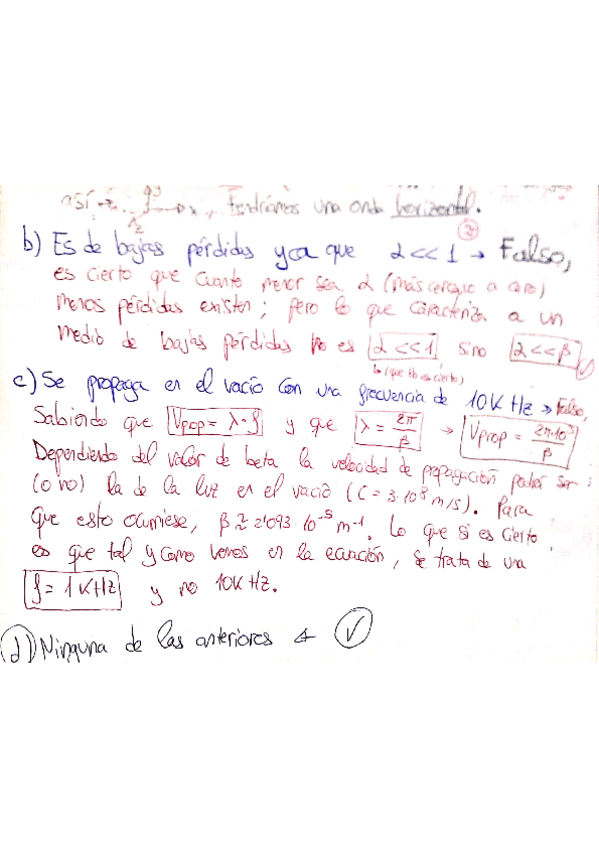 así tendríamos una onda horizontal.
b) Es de bajas pérdidas ya que α<<1 → Falso,
es cierto que cuanto menor sea α (más cercano a cero)
menos pérdidas existen; pero lo que caracteriza a un
medio de bajas pérdidas no es α<<1 sino α<<β
(que no es cierto)
c) Se propaga en el vacío con una frecuencia de 10KHz → Falso,
Sabiendo que Vprop = λ·f y que λ = 2π/β → Vprop = 2π·10³/β
Dependiendo del valor de beta la velocidad de propagación podrá ser
(o no) la de la luz en el vacío (C = 3·10⁸ m/s). Para
que esto ocurriese, β ≈ 2'093·10⁻⁵ m⁻¹. Lo que si es cierto
es que tal y como vemos en la ecuación, se trata de una
f = 1KHz y no 10KHz.
d) Ninguna de las anteriores ← ✓